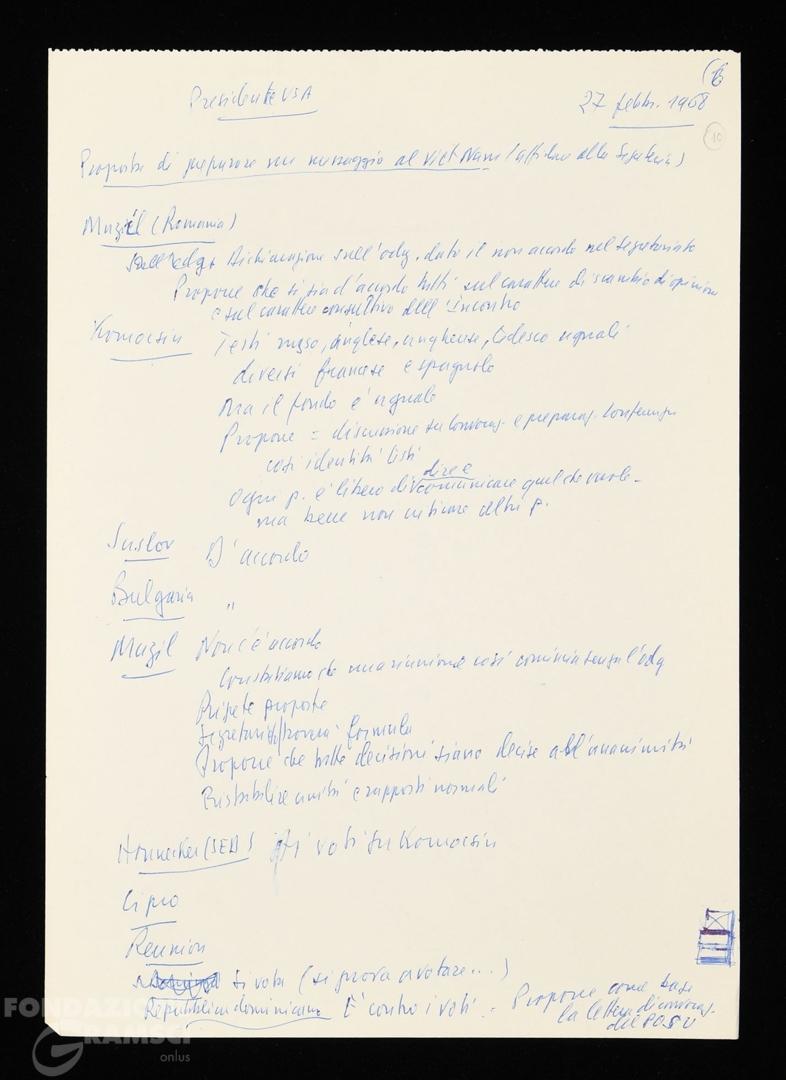 Presidente USA
27 febbr. 1968
10
Proposta di preparare un messaggio al Viet Nam (affidare alla Segreteria)
Mazil (Romania)
Sull'odg. Dichiarazione sull'odg. dato il non accordo nel segretariato
Propone che si sia d'accordo tutti sul carattere di scambio di opinioni
e sul carattere consultivo dell'incontro
Komocsin Testi russo, inglese, ungherese, tedesco uguali
diversi francese e spagnolo
Ma il fondo è uguale
Propone = discussione su convocaz. e preparaz.
così identità testi
dire e
Ogni p. è libero di comunicare quel che vuole -
ma bene non criticare altri p.
Suslov D'accordo
Bulgaria "
Mazil Non c'è accordo
Constatiamo che una riunione così comincia senza l'odg
Ripete proposte
Segretariato troverà formula
Propone che tutte decisioni siano decise all'unanimità
Ristabilire unità e rapporti normali
Honnecker (SED) si voti su Komocsin
Cipro
Reunion
Si vota (si prova a votare...)
Repubblica dominicana È contro i voti - Propone come base
la lettera di convocaz.
del PCSU
FONDAZIONE
GRAMSCI
onlus